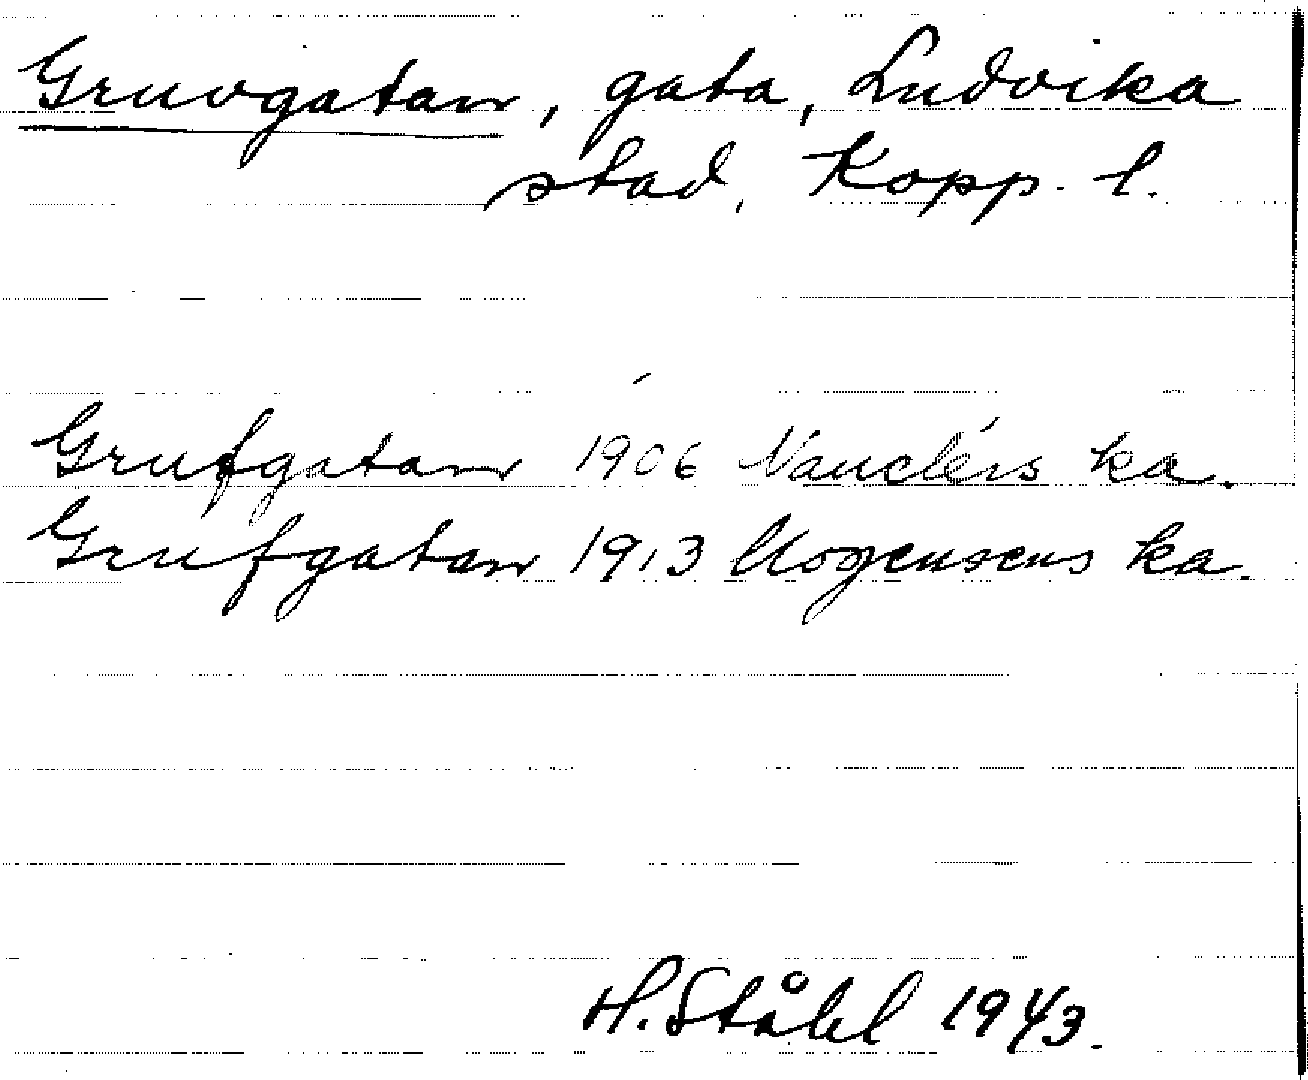 Gruvgatan, gata, Ludvika
stad, Kopp. l.
Grufgatan 1906 Nauclérs ka.
Grufgatan 1913 Mogensens ka.
H. Ståhl 1943.